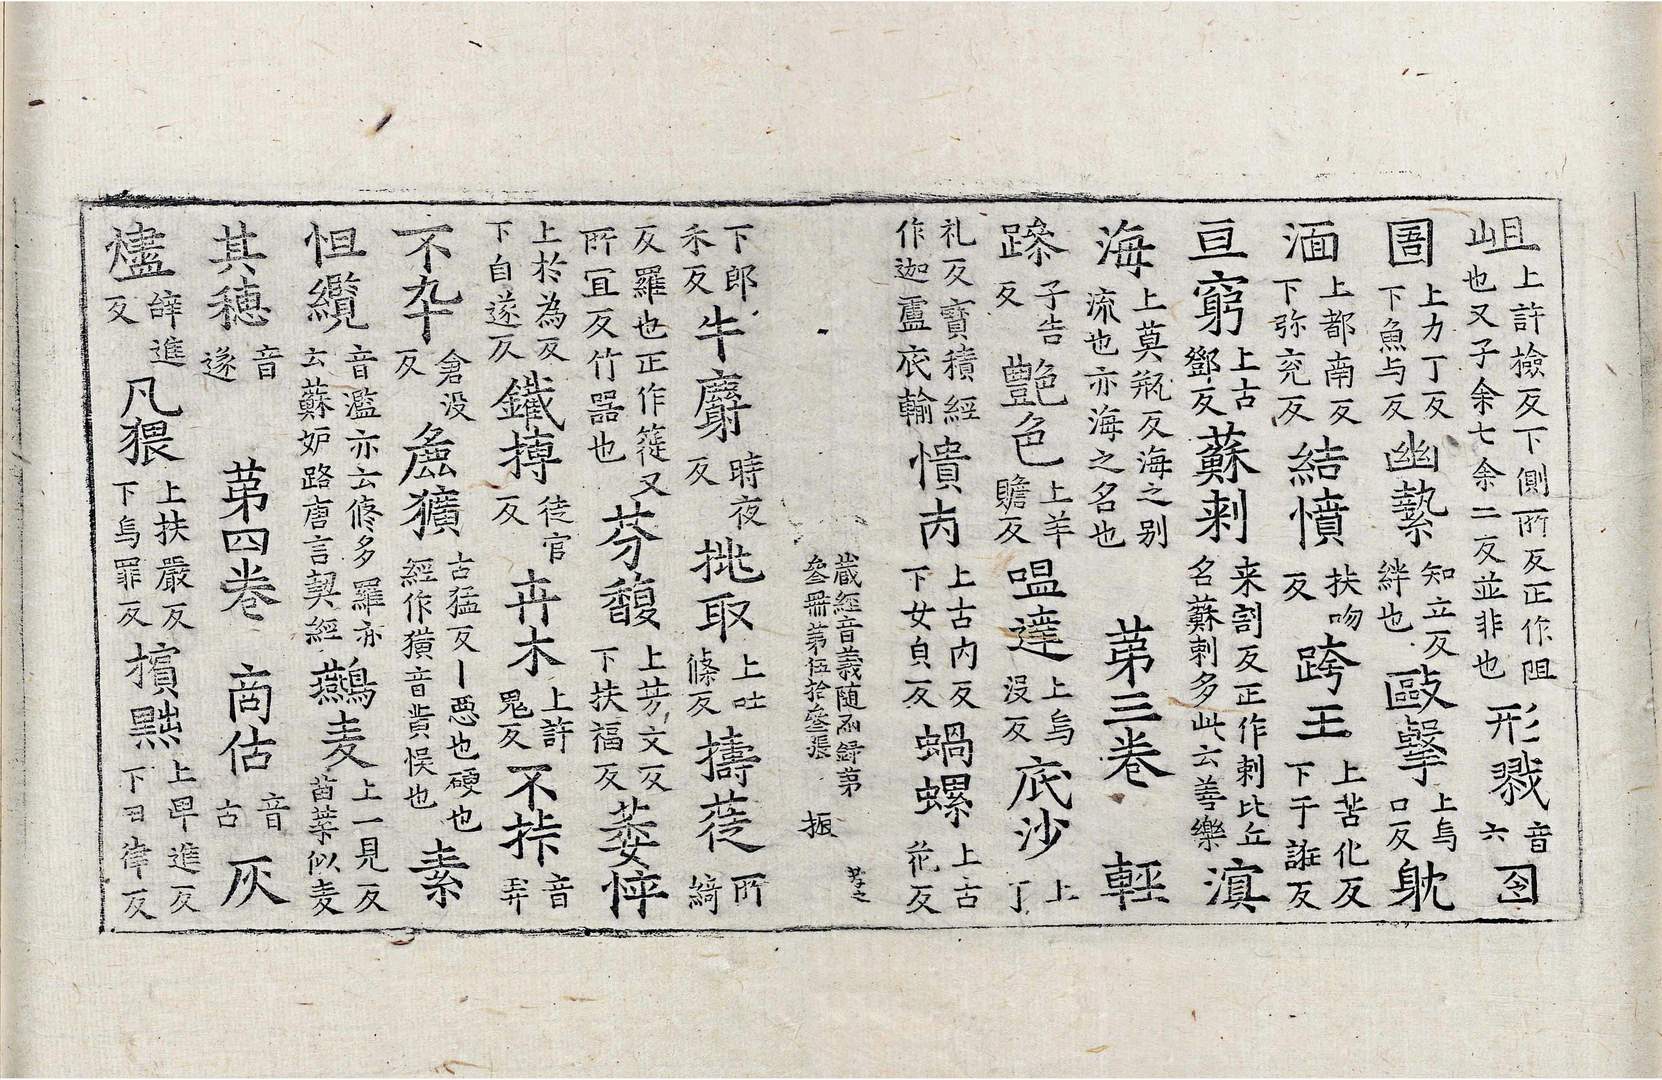 岨上許撿反下側所反正作阻也又子余七余二反並非也形戮音六囹
圄上力丁反下魚与反幽縶知立反絆也毆擊上烏口反躭
湎上都南反下弥兖反結憤扶吻反跨王上苦化反下于誑反
亘窮上古鄧反蘇刺来割反正作剌比丘名蘇剌多此云善樂滇
海上莫瓶反海之别流也亦海之名也第三卷輕
躁子告反艶色上羊贍反嗢達上烏没反底沙上丁
礼反寶積經作迦盧底輸憒丙上古内反下女皃反蝸螺上古花反
蔵經音義随函録苐叁冊苐伍拾叁張 振 孝之
下郎禾反牛麝時夜反挑取上吐條反擣蓰所綺
反羅也正作簁又所宜反竹器也芬馥上芳文反下扶福反萎悴
上於為反下自遂反鐵摶徒官反卉木上許鬼反不挊音弄
不卆倉没反麁獷古猛反丨惡也硬也經作獚音黄悮也素
怛纜音濫亦云修多羅亦云蘇妒路唐言契經鷰麦上一見反苗葉似麦
其穗音遂第四卷商估音古灰
燼辝進反凡猥上扶嚴反下烏罪反擯黜上卑進反下丑律反